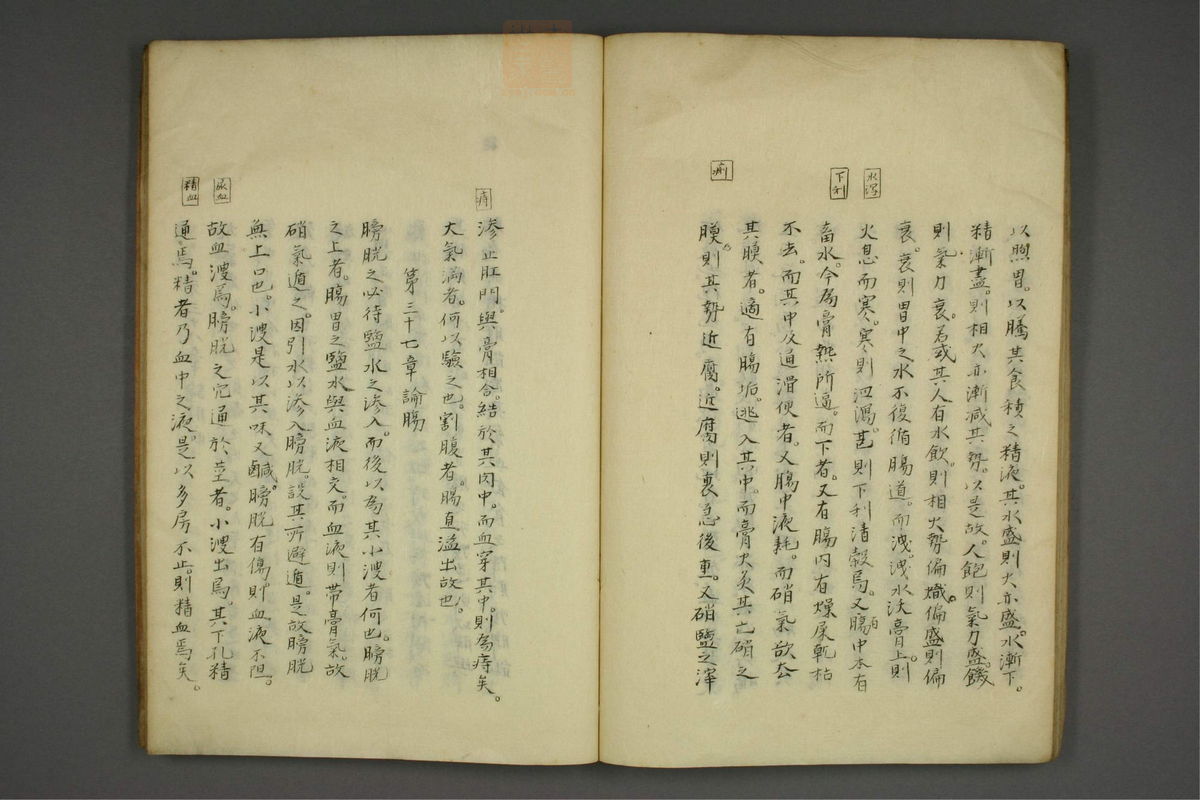 以煦胃。以騰其食積之精液。其水盛則火亦盛。水漸下。
精漸盡。則相火亦漸減其勢。以是故。人飽則氣力盛。饑
則氣力衰。若或其人有水飲。則相火勢偏熾。偏盛則偏
衰。衰則胃中之水不復循腸道。而洩。洩水沃膏上。則
水瀉
火息而寒。寒則泄瀉。甚則下利清穀焉。又腸中本有
下利
畜水。今為膏熱所逼。而下者。又有腸内有燥屎乾枯
不去。而其中及通滑便者。又腸中液耗。而硝氣欲去
其膜者。適有腸垢。逃入其中。而膏火炙其亡硝之
痢
膜。則其勢近腐。近腐則裏急後重。又硝鹽之滓
痔
滲止肛門。與膏相合。結於其肉中。而血穿其中。則為痔矣。
大氣満者。何以驗之也。割腹者。腸直溢出故也。
第三十七章論腸
膀胱之必待鹽水之滲入。而後以為其小溲者何也。膀胱
之上者。腸胃之鹽水與血液相交。而血液則帶膏氣。故
硝氣遁之。因引水以滲入膀胱。説其所避遁。是故膀胱
無上口也。小溲是以其味又鹹。膀胱有傷。則血液不阻。
尿血
故血溲焉。膀胱之穴通於莖者。小溲出焉。其下孔精
精血
通焉。精者乃血中之液。是以多房不止。則精血焉矣。